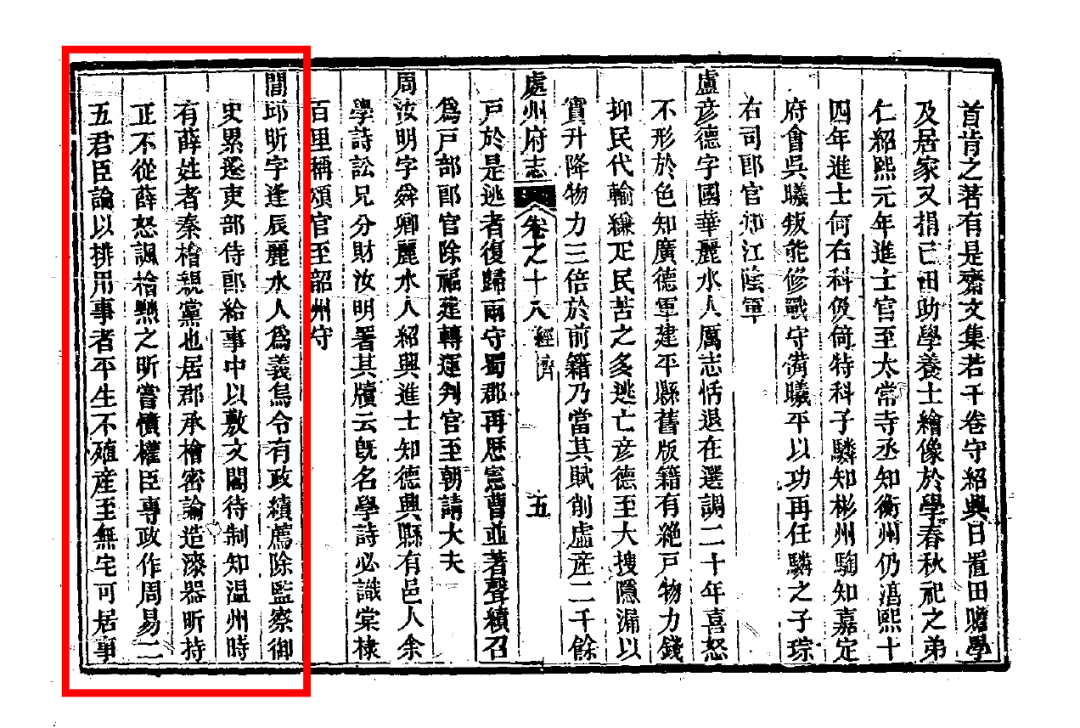 首肯之著有是齋文集若干卷守紹興日置田贍學
及居家又捐己田助學養士繪像於學春秋祀之弟
仁紹熙元年進士官至太常寺丞知衡州仍淯熙十
四年進士何右科俊倚特科子驎知彬州騊知嘉定
府會吳曦叛能修戰守備曦平以功再任驎之子琮
右司郎官知江陰軍
盧彥德字國華麗水人厲志恬退在選調二十年喜怒
不形於色知廣德軍建平縣舊版籍有絕戸物力錢
抑民代輸縑疋民苦之多逃亡彥德至大搜隱漏以
實升降物力三倍於前籍乃當其賦削虛産二千餘
處州府志 卷之十八 經濟 五
戸於是逃者復歸兩守蜀郡再歷憲曹並著聲績召
爲戸部郎官除福建轉運判官至朝請大夫
周汝明字舜卿麗水人紹興進士知德興縣有邑人余
學詩訟兄分財汝明署其牘云旣名學詩必識棠棣
百里稱頌官至韶州守
閭邱昕字逢辰麗水人爲義烏令有政績薦除監察御
史累遷吏部侍郎給事中以敷文閣待制知温州時
有薛姓者秦檜親黨也居郡承檜密諭造漆器昕持
正不從薛怒諷檜黜之昕嘗憤權臣專政作周易二
五君臣論以排用事者平生不殖産至無宅可居事